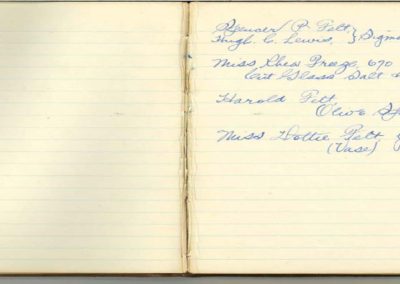 Spencer P. Felt,
Hugh C. Lewis, } Sigma
Miss Rhea Freeze, 670
Cut Glass Salt
Harold Felt
Olive
Miss Dottie Felt
(Vase)